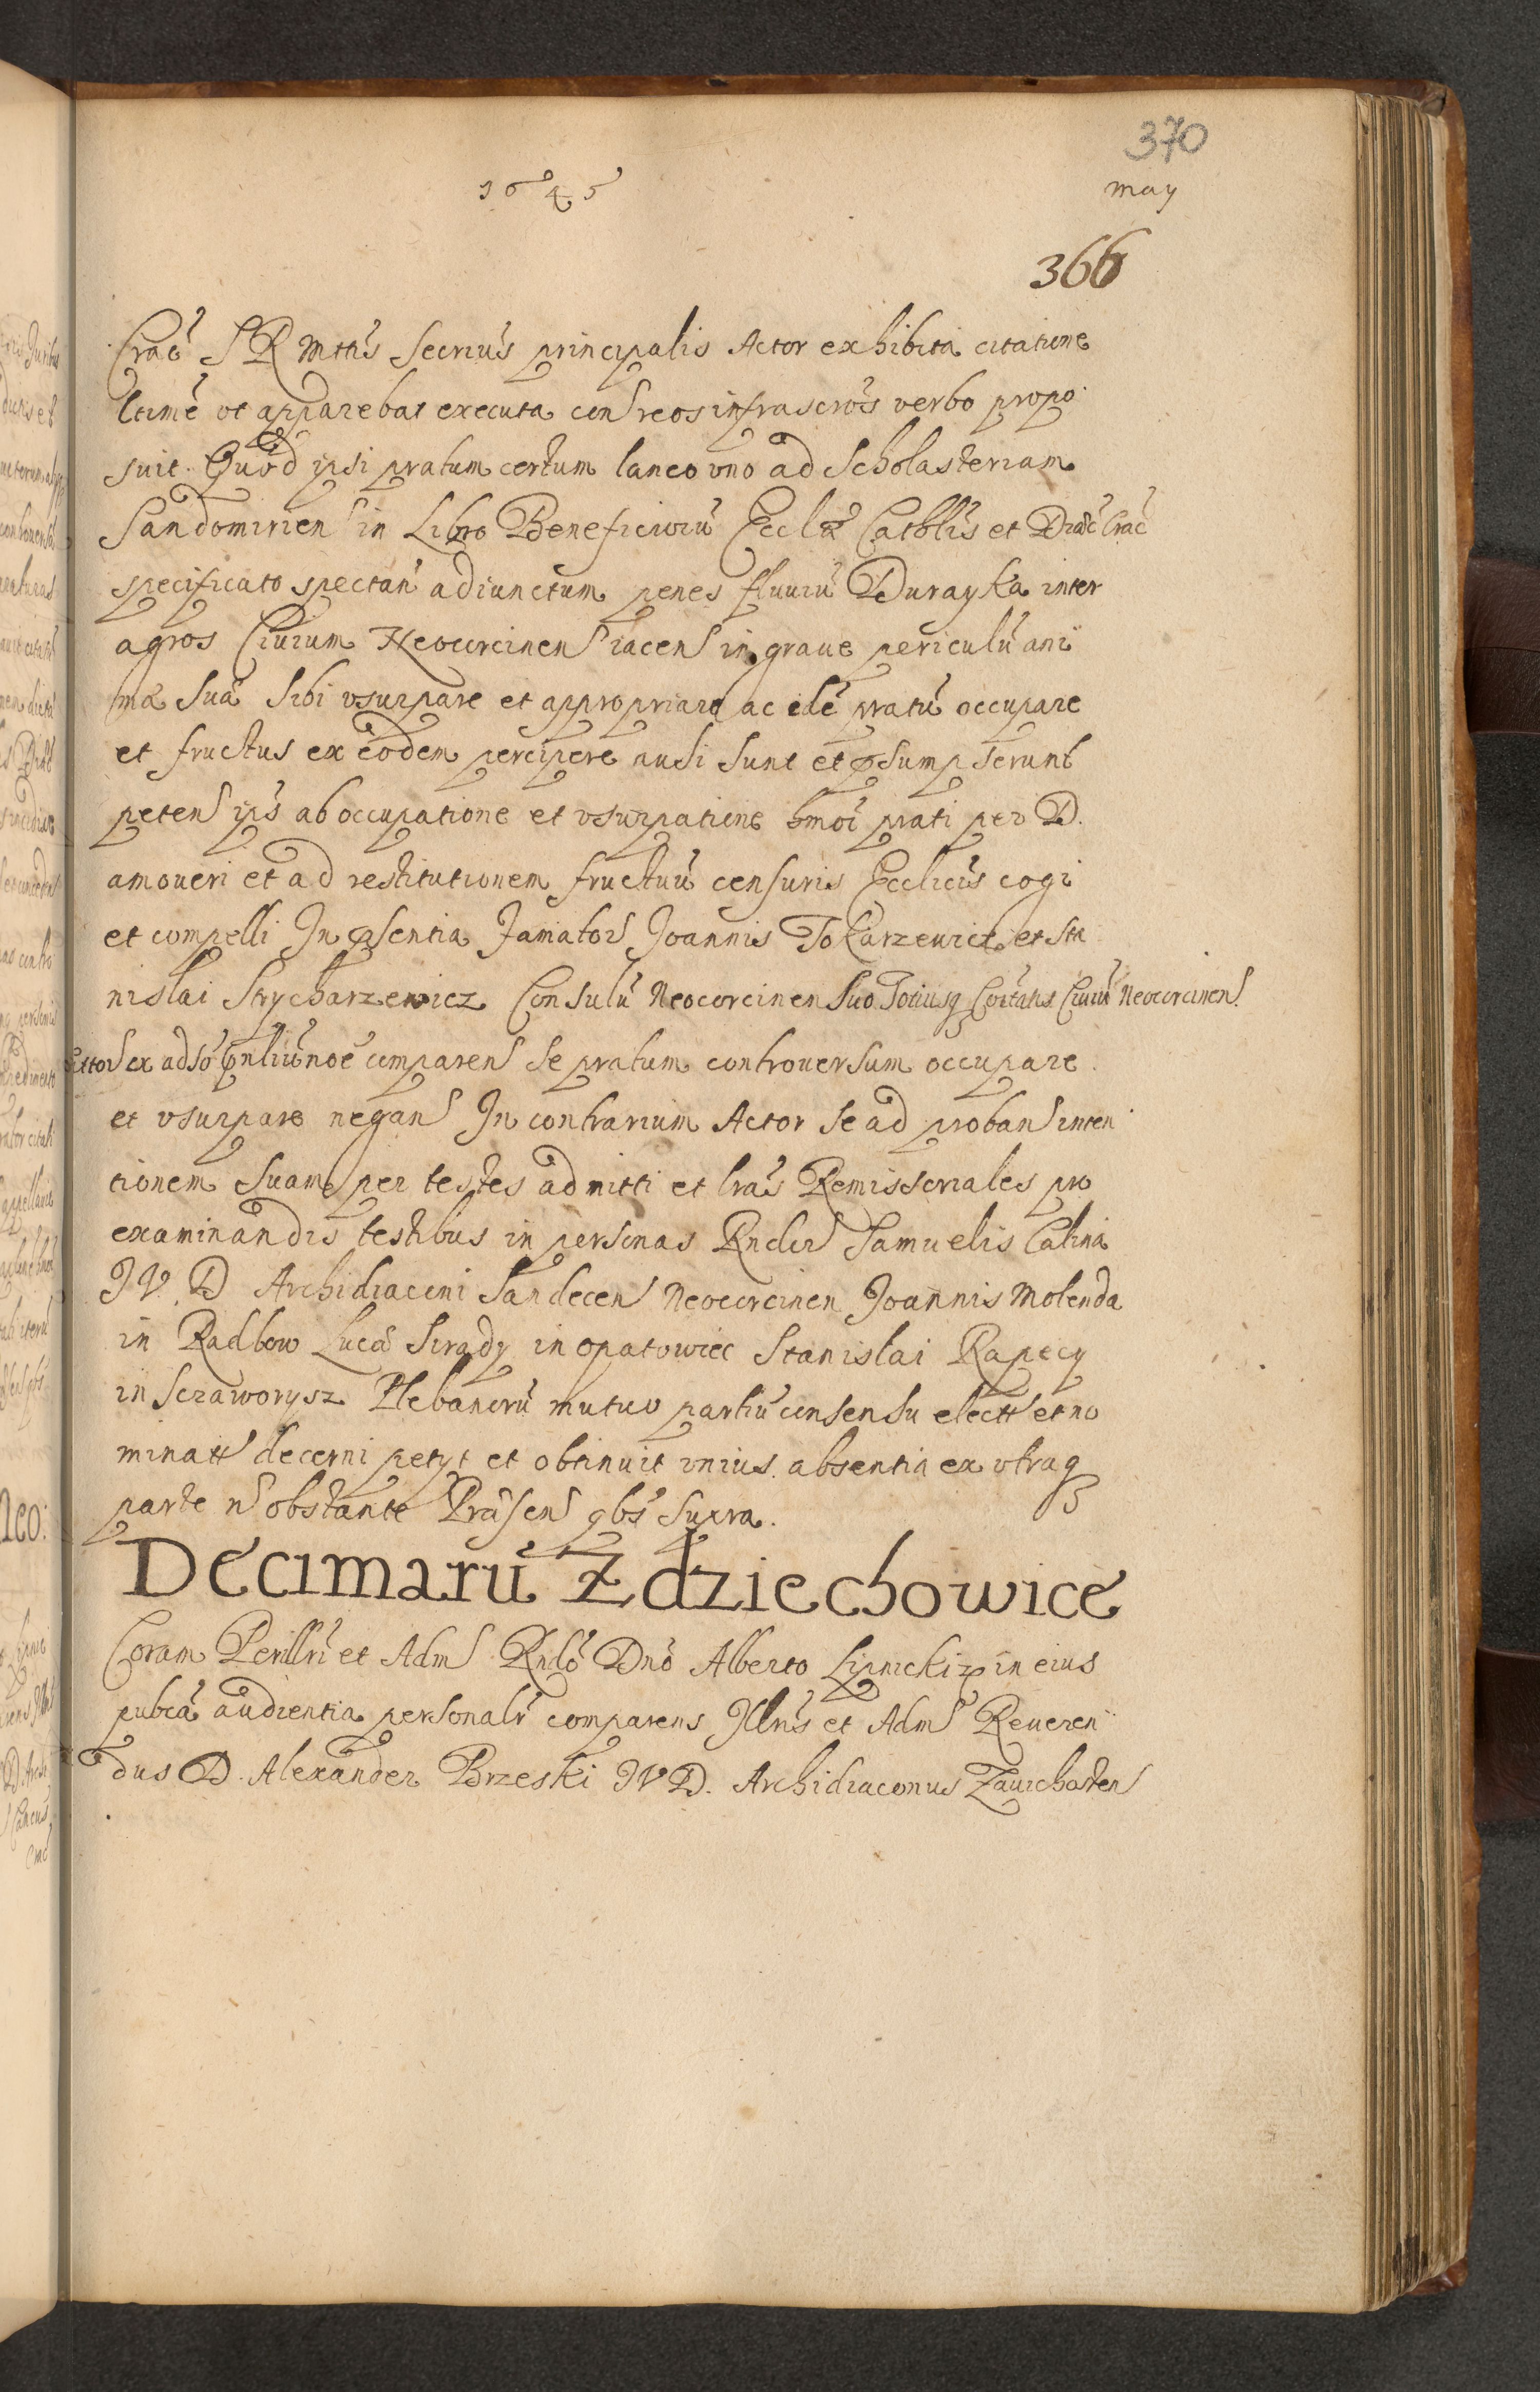 370
1645 may
366
Crac̃ S R Mttis Secriũs principalis Actor exhibita citatione
ltimẽ vt apparebat executa con reos infrascrõs verbo propo
suit. Quod ipsi pratum certum laneo vno ad Scholasteriam
Sandomirien in Libro Beneficioru Ecclæ Cathlis et Diæc Crac
specificato spectan adiunctum penes fluuiu Durayka inter
agros Ciuium Neocorcinen iacen in graue periculũ ani
mæ Suæ Sibi vsurpare et appropriare ac idẽ pratũ occupare
et fructus ex eodem percipere ausi sunt et psumpserunt
peten ips ab occupatione et vsurpatione hmõi prati per D.
amoueri et ad restitutionem fructuũ censuris Ecclicis cogi
et compelli In psentia Famator Joannis Tokarzewicz et Sta
nislai Strycharzewicz Consulũ Neocorcinen Suo Totiusq Cõitatis Ciuiũ Neocorcinen.
ex adso comparen se pratum controuersum occupare
et vsurpare negan In contrarium Actor se ad proban inten
tionem Suam per testes admitti et lras Remissoriales pro
examinandis testibus in personas Rndor Samuelis Calina
J V. D Archidiaconi Sandecen Neocorcinen Joannis Molenda
in Radbow Lucæ Sirady in Opatowiec Stanislai Rapecy
in Sczaworysz Plebanorũ mutuo partiũ consensu elect et no
minatt decerni petyt et obtinuit vnius absentia ex vtraq
parte n obstante Præsen qbs Supra.
Decimarũ Zdziechowice
Coram Perillri et Adm Rndo Dno Alberto Lipnicki in eius
pubca audientia personalr comparens Illris et Adm Reueren
dus D. Alexander Brzeski J V D. Archidiaconus Zauichosten